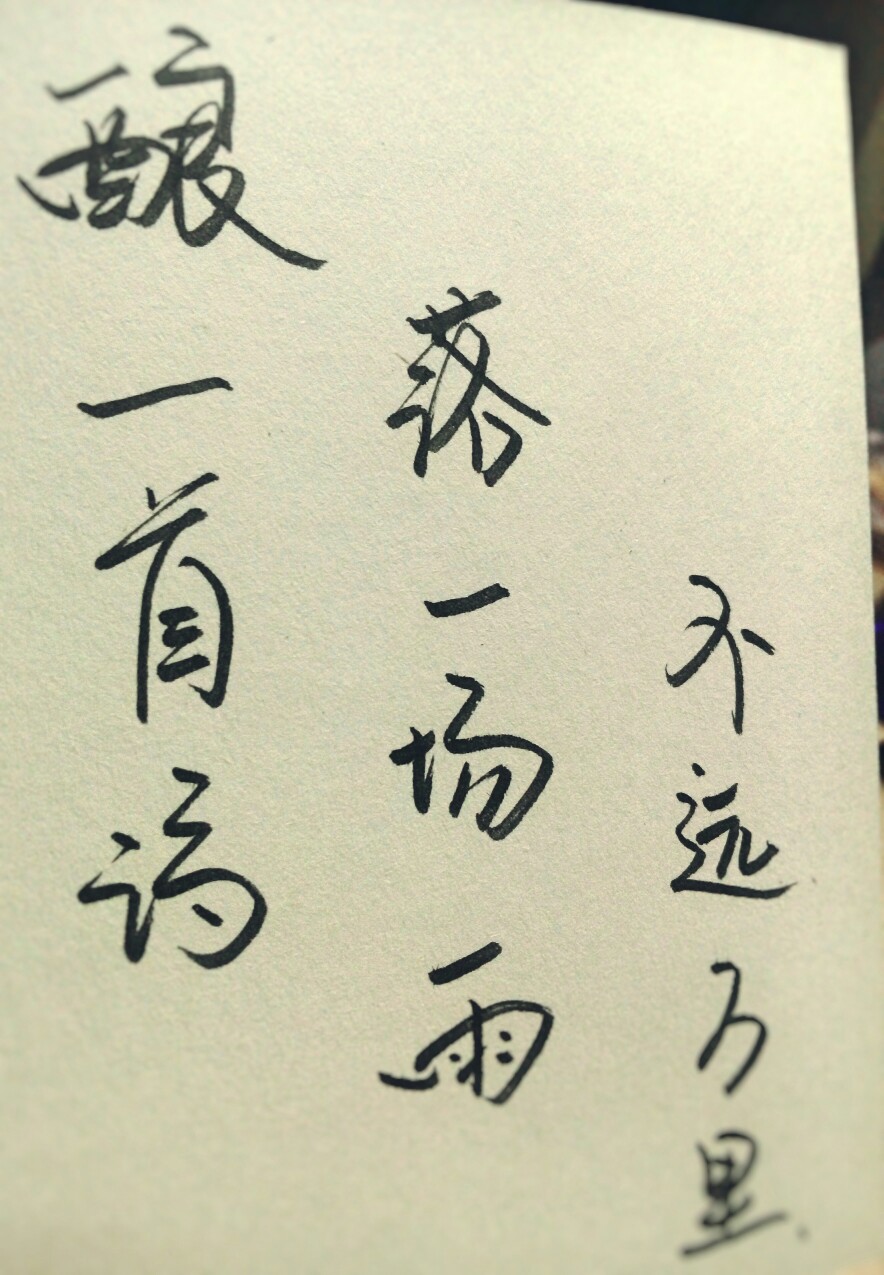 酿一首
落一场雨
不远万里